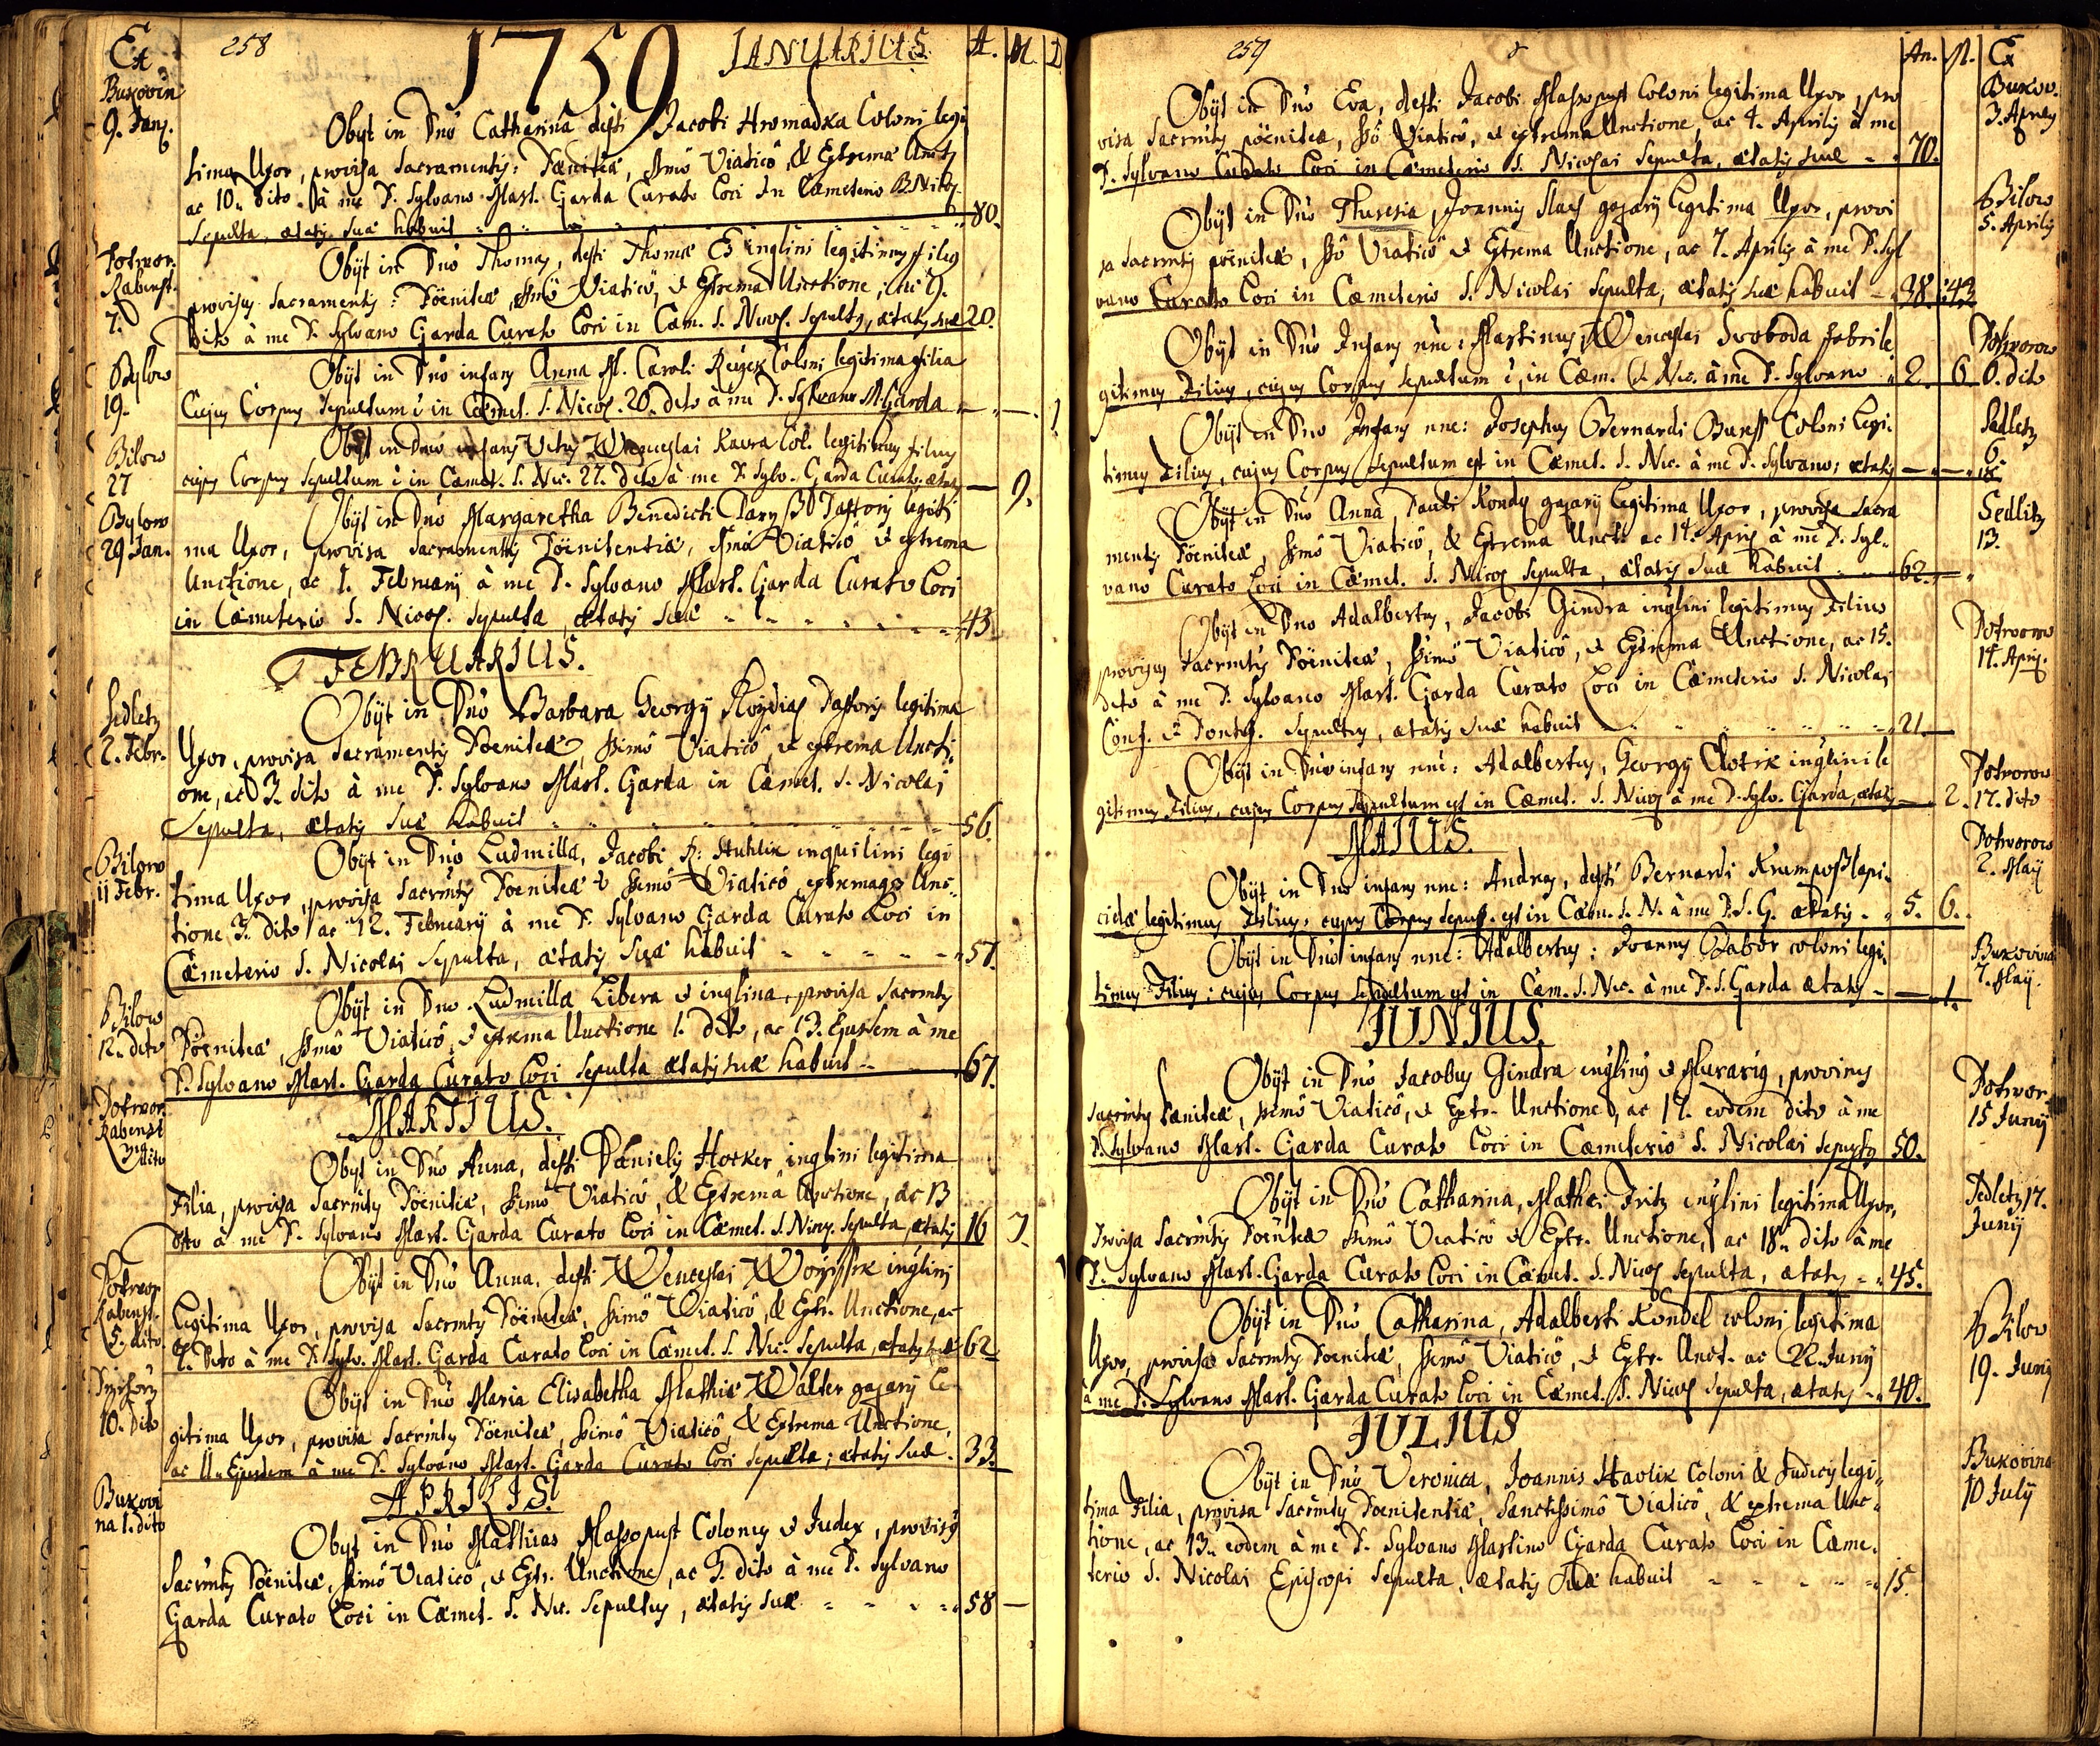 Ex 258 1759 IANUARIUS A. M. D
Bukovin
9. Janỹ.
Obyt in Dno Catharina defti Jacobi Hromadka Coloni legi
tima Uxor, provisa Sacramentỹ: Pœnitea, ssmo Viatico, & Extrema Uncti
ac 10. dito à me P. Sylvano Mart. Garda Curato Loci in Cœmeterio B. Nicol.
Sepulta, ætatỹ suæ habuit 80.
Potwor.
Rabenst.
7.
Obÿt in Dno Thomas, defti Thomæ inqlini legitimỹ filỹ
provisỹ Sacramentỹ: Pœniteæ, ssmo Viatico, & Extrema Unctione,
dito à me P. Sylvano Garda Curato Loci in Cœm. S. Nicol. Sepultỹ, ætatỹ suæ 20.
Bylow
19.
Obÿt in Dno infans Anna M. Caroli Coloni legitima filia
Cujus Corpus Sepultum è in Cœmet. S. Nicol. 20. dito à me P. Sylvano M. Garda — — 1
Bilow
27
Obÿt in Dno infans Vitus Wenceslai Kavra Col. legitimus filius
cujus Corpus Sepultum è in Cœmet. S. Nic. 27. dito à me P. Sylv. Garda Curato ætatỹ — 9.
Bylow
29 Jan.
Obÿt in Dno Margaretha Benedicti Pastoris legiti
ma Uxor, provisa Sacramentỹ Pœnitentiæ, ssmo Viatico & extrema
Unctione, ac 1. Februarÿ à me P. Sylvano Mart. Garda Curato Loci
in Cœmeterio S. Nicol. Sepulta, ætatỹ suæ 43.
FEBRUARIUS.
Sedletz
2. Febr.
Obÿt in Dno Barbara Georgÿ Pastoris legitima
Uxor, provisa Sacramentỹ Pœniteæ, ssimo Viatico, & extrema Uncti-
one, ac 3. dito à me P. Sylvano Mart. Garda in Cœmet. S. Nicolai
Sepulta, ætatỹ suæ habuit 56.
Bilow
11 Febr.
Obÿt in Dno Ludmilla, Jacobi inquilini legi
tima Uxor, provisa Sacrmtỹ Pœniteæ & ssimo Viatico, extremaqꝫ Unc-
tione 3. dito ac 12. Februarÿ à me P. Sylvano Garda Curato Loci in
Cœmeterio S. Nicolai Sepulta, ætatỹ suæ habuit 57.
Bilow
12. dito
Obÿt in Dno Ludmilla Libera & inqlina provisa Sacrmtỹ
Pœniteæ, ssmo Viatico, & extrema Unctione 1. dito, ac 13. Ejusdem à me
P. Sylvano Mart. Garda Curato Loci Sepulta ætatỹ suæ habuit 67.
MARTIUS.
Potwor.
Rabenst
dito
Obyt in Dno Anna, defti Danielỹ Hocker inqlini legitima
Filia, provisa Sacrmtỹ Pœniteæ, ssimo Viatico, & Extrema Unctione, ac 13
dito à me P. Sylvano Mart. Garda Curato Loci in Cœmet. S. Nicoỹ. Sepulta, ætatỹ 16 7.
Potwor
Rabenst.
5. dito
Obÿt in Dno Anna, defti Wenceslai inqlini
Legitima Uxor, provisa Sacrmtỹ Pœniteæ, ssimo Viatico, & Extr. Unctione, ac
7. dito à me P. Sylv. Mart. Garda Curato Loci in Cœmet. S. Nic. Sepulta, ætatỹ suæ 62
10. dito
Obÿt in Dno Maria Elisabetha Mathiæ Walter gajarÿ le-
gitima Uxor, provisa Sacrmtỹ Pœniteæ, ssimo Viatico, & Extrema Unctione,
ac 11. Ejusdem à me P. Sylvano Mart. Garda Curato Loci Sepulta; ætatỹ suæ 33.
APRILIS.
Bukovi
na 1. dito
Obÿt in Dno Mathias Massopust Colonus & Judex, provisỹ
Sacrmtỹ Pœniteæ, ssimo Viatico, & Extr. Unctione, ac 3. dito à me P. Sylvano
Garda Curato Loci in Cœmet. S. Nic. Sepultus, ætatỹ suæ 58 —
259 An. M. Ex
Bukov.
3. Aprilỹ
Obÿt in Dno Eva, defti Jacobi Massopust Coloni legitima Uxor, pro
visa Sacrmtỹ pœniteæ, sso Viatico, & extrema Unctione, ac 4. Aprilỹ à me
P. Sylvano Curato Loci in Cœmeterio S. Nicolai Sepulta, ætatỹ suæ 70.
Bilow
5. Aprilỹ
Obÿt in Dno Theresia, Joannis gajarÿ legitima Uxor, provi
sa Sacrmtỹ pœniteæ, sso Viatico & Extrema Unctione, ac 7. Aprilỹ à me P. Syl
vano Curato Loci in Cœmeterio S. Nicolai Sepulta, ætatỹ suæ habuit 38.
Potworow
6. dito
Obÿt in Dno Infans nne: Martinus Wenceslai Svoboda fabri le
gitimus Filius, cujus Corpus Sepultum è, in Cœm. S. Nic. à me P. Sylvano 2. 6
Sedletz
6.
Obÿt in Dno Infans nne: Josephus Bernardi Buress Coloni Legi-
timus Filius, cujus Corpus Sepultum est in Cœmet. S. Nic. à me P. Sylvano; ætatỹ
Sedlitz
13.
Obÿt in Dno Anna, Pauli gajarÿ legitima Uxor, provisa Sacra
mentỹ Pœniteæ, ssimo Viatico, & Extrema Uncti: ac 14. Aprỹ à me P. Syl-
vano Curato Loci in Cœmet. S. Nicoỹ Sepulta, ætatỹ suæ habuit 62.
Potworow
14. Aprỹ.
Obÿt in Dno Adalbertus, Jacobi Gindra inqlini legitimus Filius
provisus Sacrmtỹ Pœniteæ, ssimo Viatico, & Extrema Unctione, ac 15.
dito à me P. Sylvano Mart. Garda Curato Loci in Cœmeterio S. Nicolai
Conf. & Pontif. Sepultus, ætatỹ suæ habuit 21.
Potworow
17. dito
Obÿt in Dno infans nne: Adalbertus, Georgÿ Clotik inqlini le
gitimus Filius, cujus Corpus Sepultum est in Cœmet. S. Nicoỹ à me P. Sylv. Garda, ætatỹ — 2.
MAIUS.
Potworow
2. Maÿ
Obÿt in Dno infans nne: Andreas, defti Bernardi lapi-
cidæ legitimus Filius, cujus Corpus Sepult. est in Cœm. S. N. à me P. S. G. ætatỹ 5. 6.
Bukovina
7. Maÿ.
Obÿt in Dno infans nne: Adalbertus: Joannis Gabor coloni legi-
timus Filius; cujus Corpus Sepultum est in Cœm. S. Nic. à me P. S. Garda ætatỹ — 1.
IUNIUS.
Potwor
15 Junÿ
Obÿt in Dno Jacobus Gindra inqlinỹ & Murariỹ, provisus
Sacrmtỹ Pœniteæ, ssimo Viatico, & Extr. Unctione, ac 17. eodem dito à me
P. Sylvano Mart. Garda Curato Loci in Cœmeterio S. Nicolai Sepultỹ 50.
Sedletz 17.
Junÿ
Obÿt in Dno Catharina, Mathæi Fritz inqlini legitima Uxor,
Provisa Sacrmtỹ Pœniteæ ssimo Viatico & Extr. Unctione, ac 18. dito à me
P. Sylvano Mart. Garda Curato Loci in Cœmet. S. Nicoỹ Sepulta, ætatỹ 45.
Bilow
19. Junÿ
Obÿt in Dno Catharina, Adalberti Kondel coloni legitima
Uxor, provisa Sacrmtỹ Pœniteæ, ssimo Viatico, & Extr. Unct. ac 22. Junÿ
à me P. Sylvano Mart. Garda Curato Loci in Cœmet. S. Nicoỹ Sepulta, ætatỹ 40.
IULIUS
Bukovina
10 Julÿ
Obÿt in Dno Veronica, Joannis Havlik Coloni & Judicỹ legi-
tima Filia, provisa Sacrmtỹ Pœnitentiæ, Sanctissimo Viatico, & extrema Unc-
tione, ac 13. eodem à me P. Sylvano Martino Garda Curato Loci in Cœme-
terio S. Nicolai Episcopi Sepulta, ætatỹ suæ habuit 15.